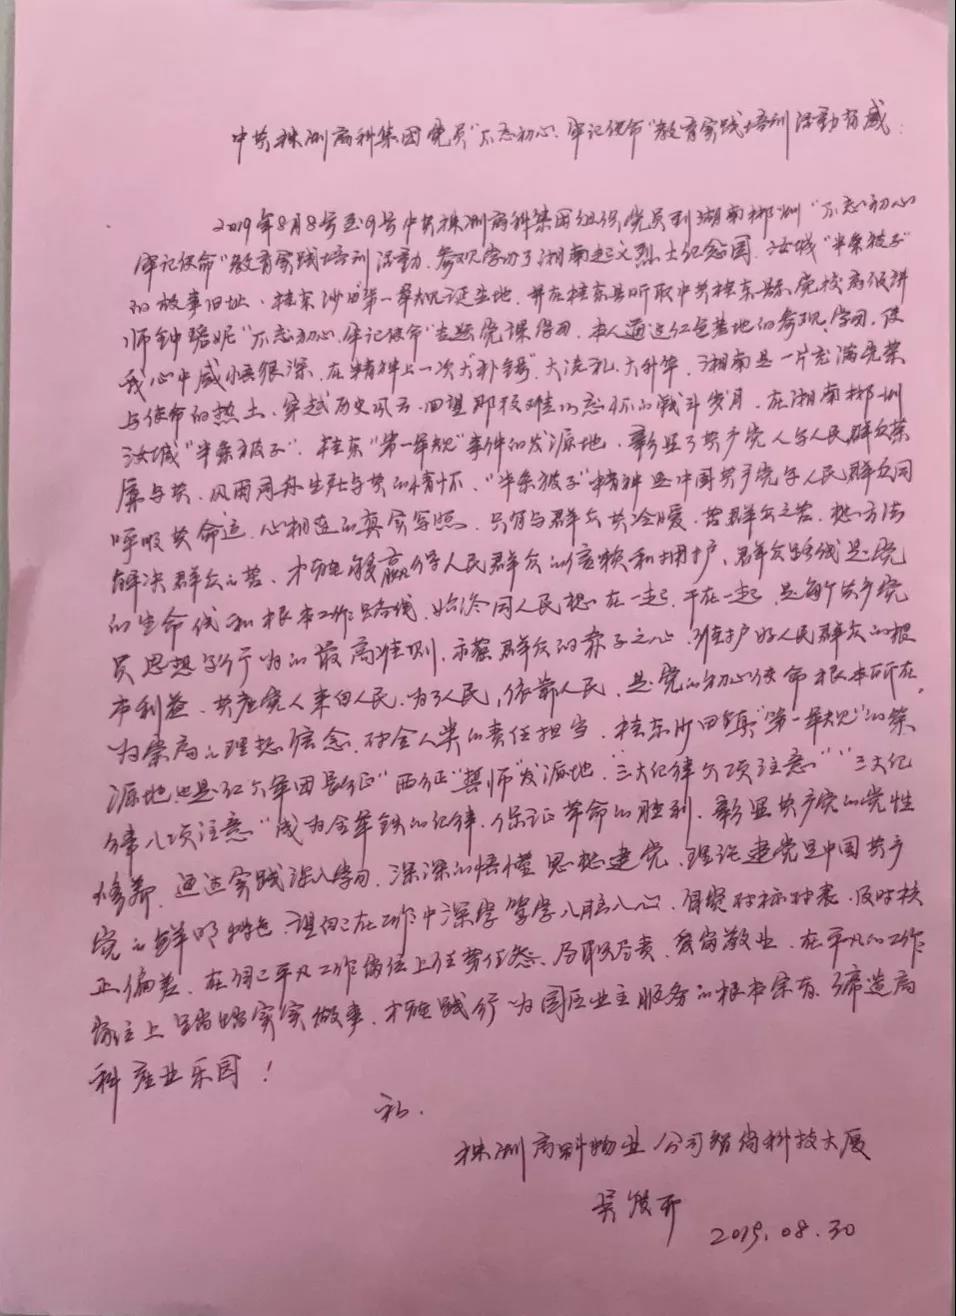 中共株洲高科集团党员"不忘初心、牢记使命"教育实践培训活动有感:
2019年8月8号至9号中共株洲高科集团组织党员到湖南郴州"不忘初心
牢记使命"教育实践培训活动、参观学习了湘南起义烈士纪念园、汝城"半条被子"
的故事旧址、桂东沙田第一军规诞生地、并在桂东县听取中共桂东县委党校高级讲
师钟 妮"不忘初心、牢记使命"主题党课学习、本人通过红色基地的参观、学习、使
我心中感悟很深、在精神上一次大"补钙"、大洗礼、大升华、湘南是一片充满光荣
与使命的热土、穿越历史风云、回望那段难以忘怀的战斗岁月、在湘南郴州
汝城"半条被子"、桂东"第一军规"事件的发源地、彰显了共产党人与人民群众荣
辱与共、风雨同舟生死与共的情怀、"半条被子"精神是中国共产党与人民群众同
呼吸共命运、心相连的真实写照、只有与群众共冷暖、苦群众之苦、想方法
解决群众之苦、才能够赢得人民群众的信赖和拥护、群众路线是党
的生命线和根本工作路线、始终同人民想在一起、干在一起、是每个共产党
员思想与行为的最高准则、 群众的赤子之心、维护好人民群众的根
本利益、共产党人来自人民、为了人民、依靠人民、是党的初心使命根本所在、
为崇高之理想信念、对全人类的责任担当、桂东沙田镇"第一军规"的策
源地也是红六军团长征"西征"誓师"发源地、"三大纪律六项注意""三大纪
律八项注意"成为全军铁的纪律、保证革命的胜利、彰显共产党的党性
修养、通过实践深入学习、深深的悟懂思想建党、理论建党是中国共产
党之鲜明特色、让自己在工作中深学笃学入脑入心、自觉对标对表、及时校
正偏差、在自己平凡工作岗位上任劳任怨、尽职尽责、爱岗敬业、在平凡的工作
岗位上踏踏实实做事、才能践行为园区业主服务的根本宗旨、缔造高
科产业乐园!
礼.
株洲高科物业公司智尚科技大厦
吴 开
2019.08.30